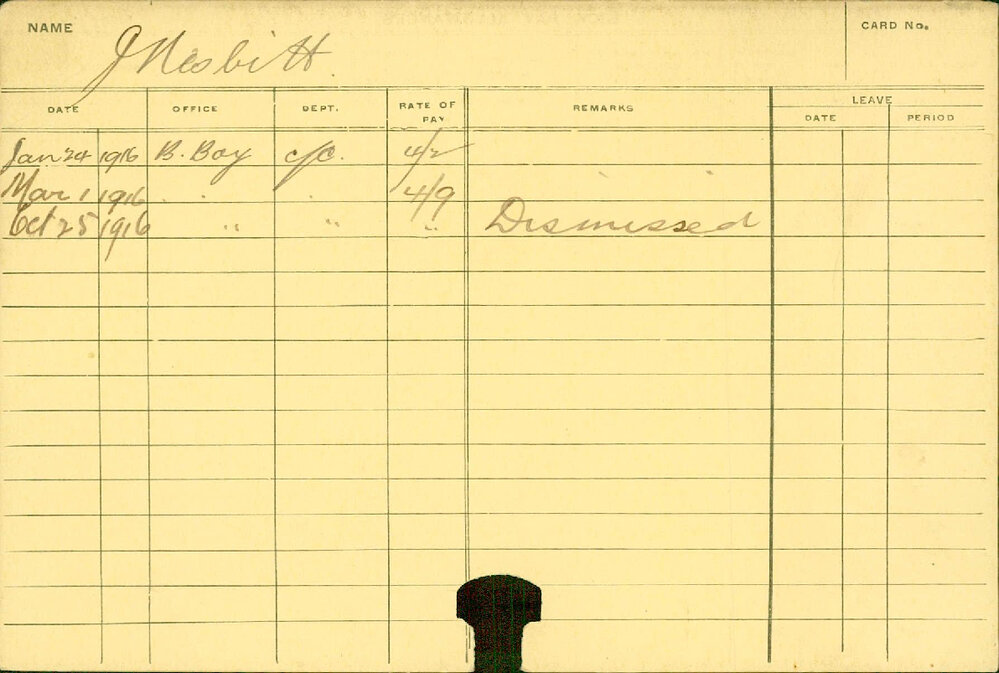 NAME J Nesbitt CARD No.
DATE OFFICE DEPT. RATE OF PAY REMARKS LEAVE
DATE PERIOD
Jan 24 1916 B. Boy c/c. 4/2
Mar 1 1916 " " 4/9
Oct 25 1916 " " " Dismissed